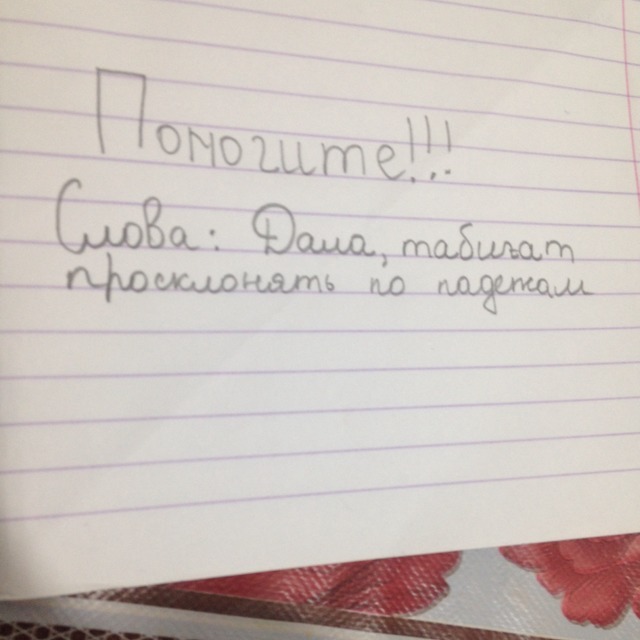 Помогите!!!
Слова: Дала, табиғат
просклонять по падежам